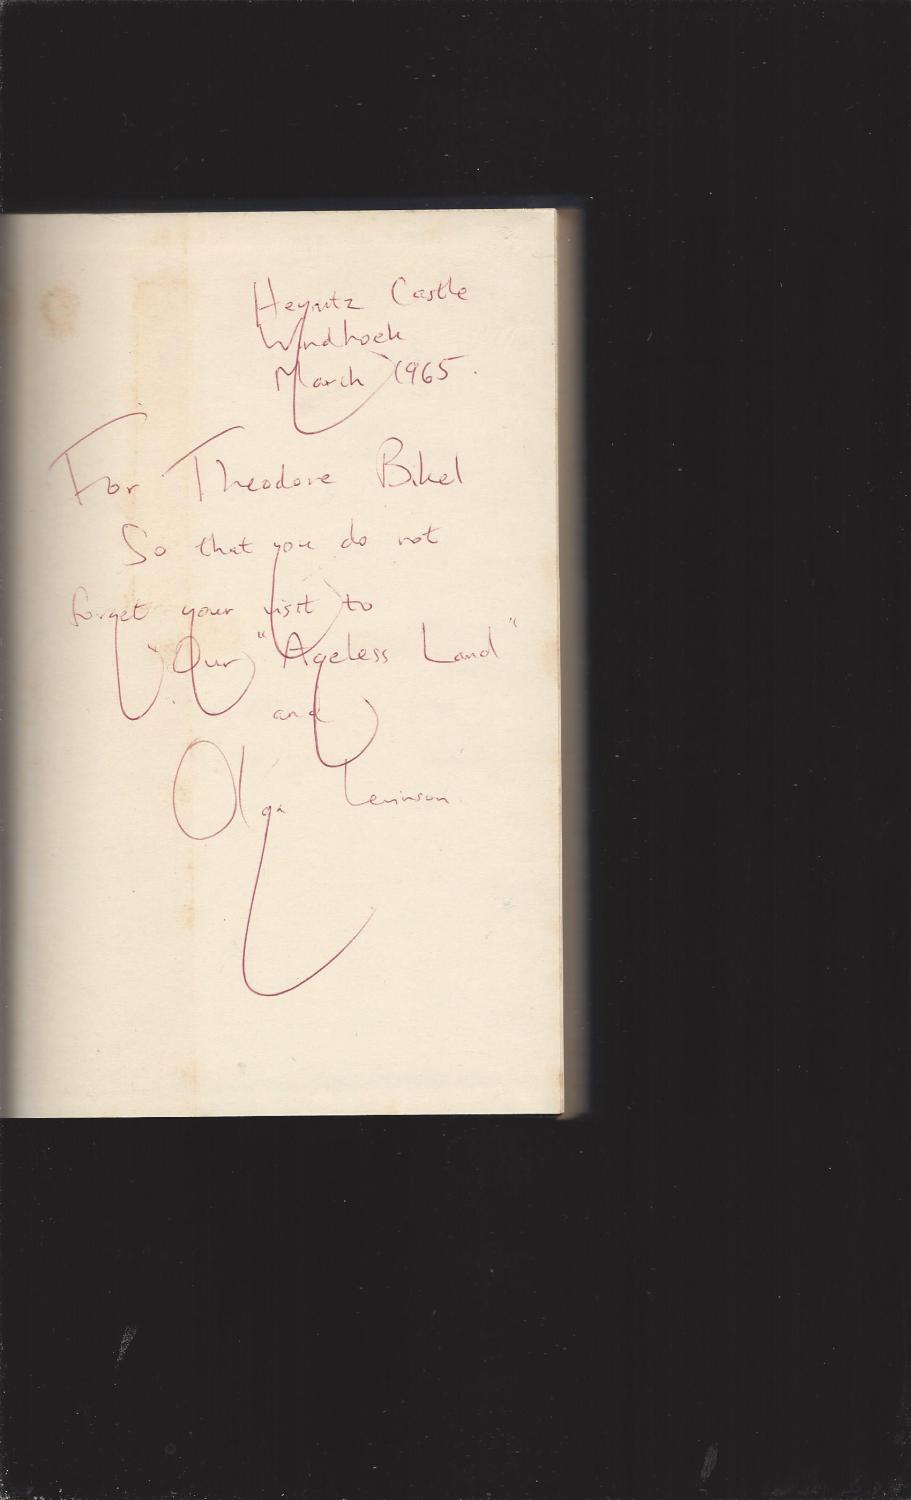 Heynitz Castle
Windhoek
March 1965.
For Theodore Bikel
So that you do not
forget your visit to
Our "Ageless Land"
and
Olga Levinson